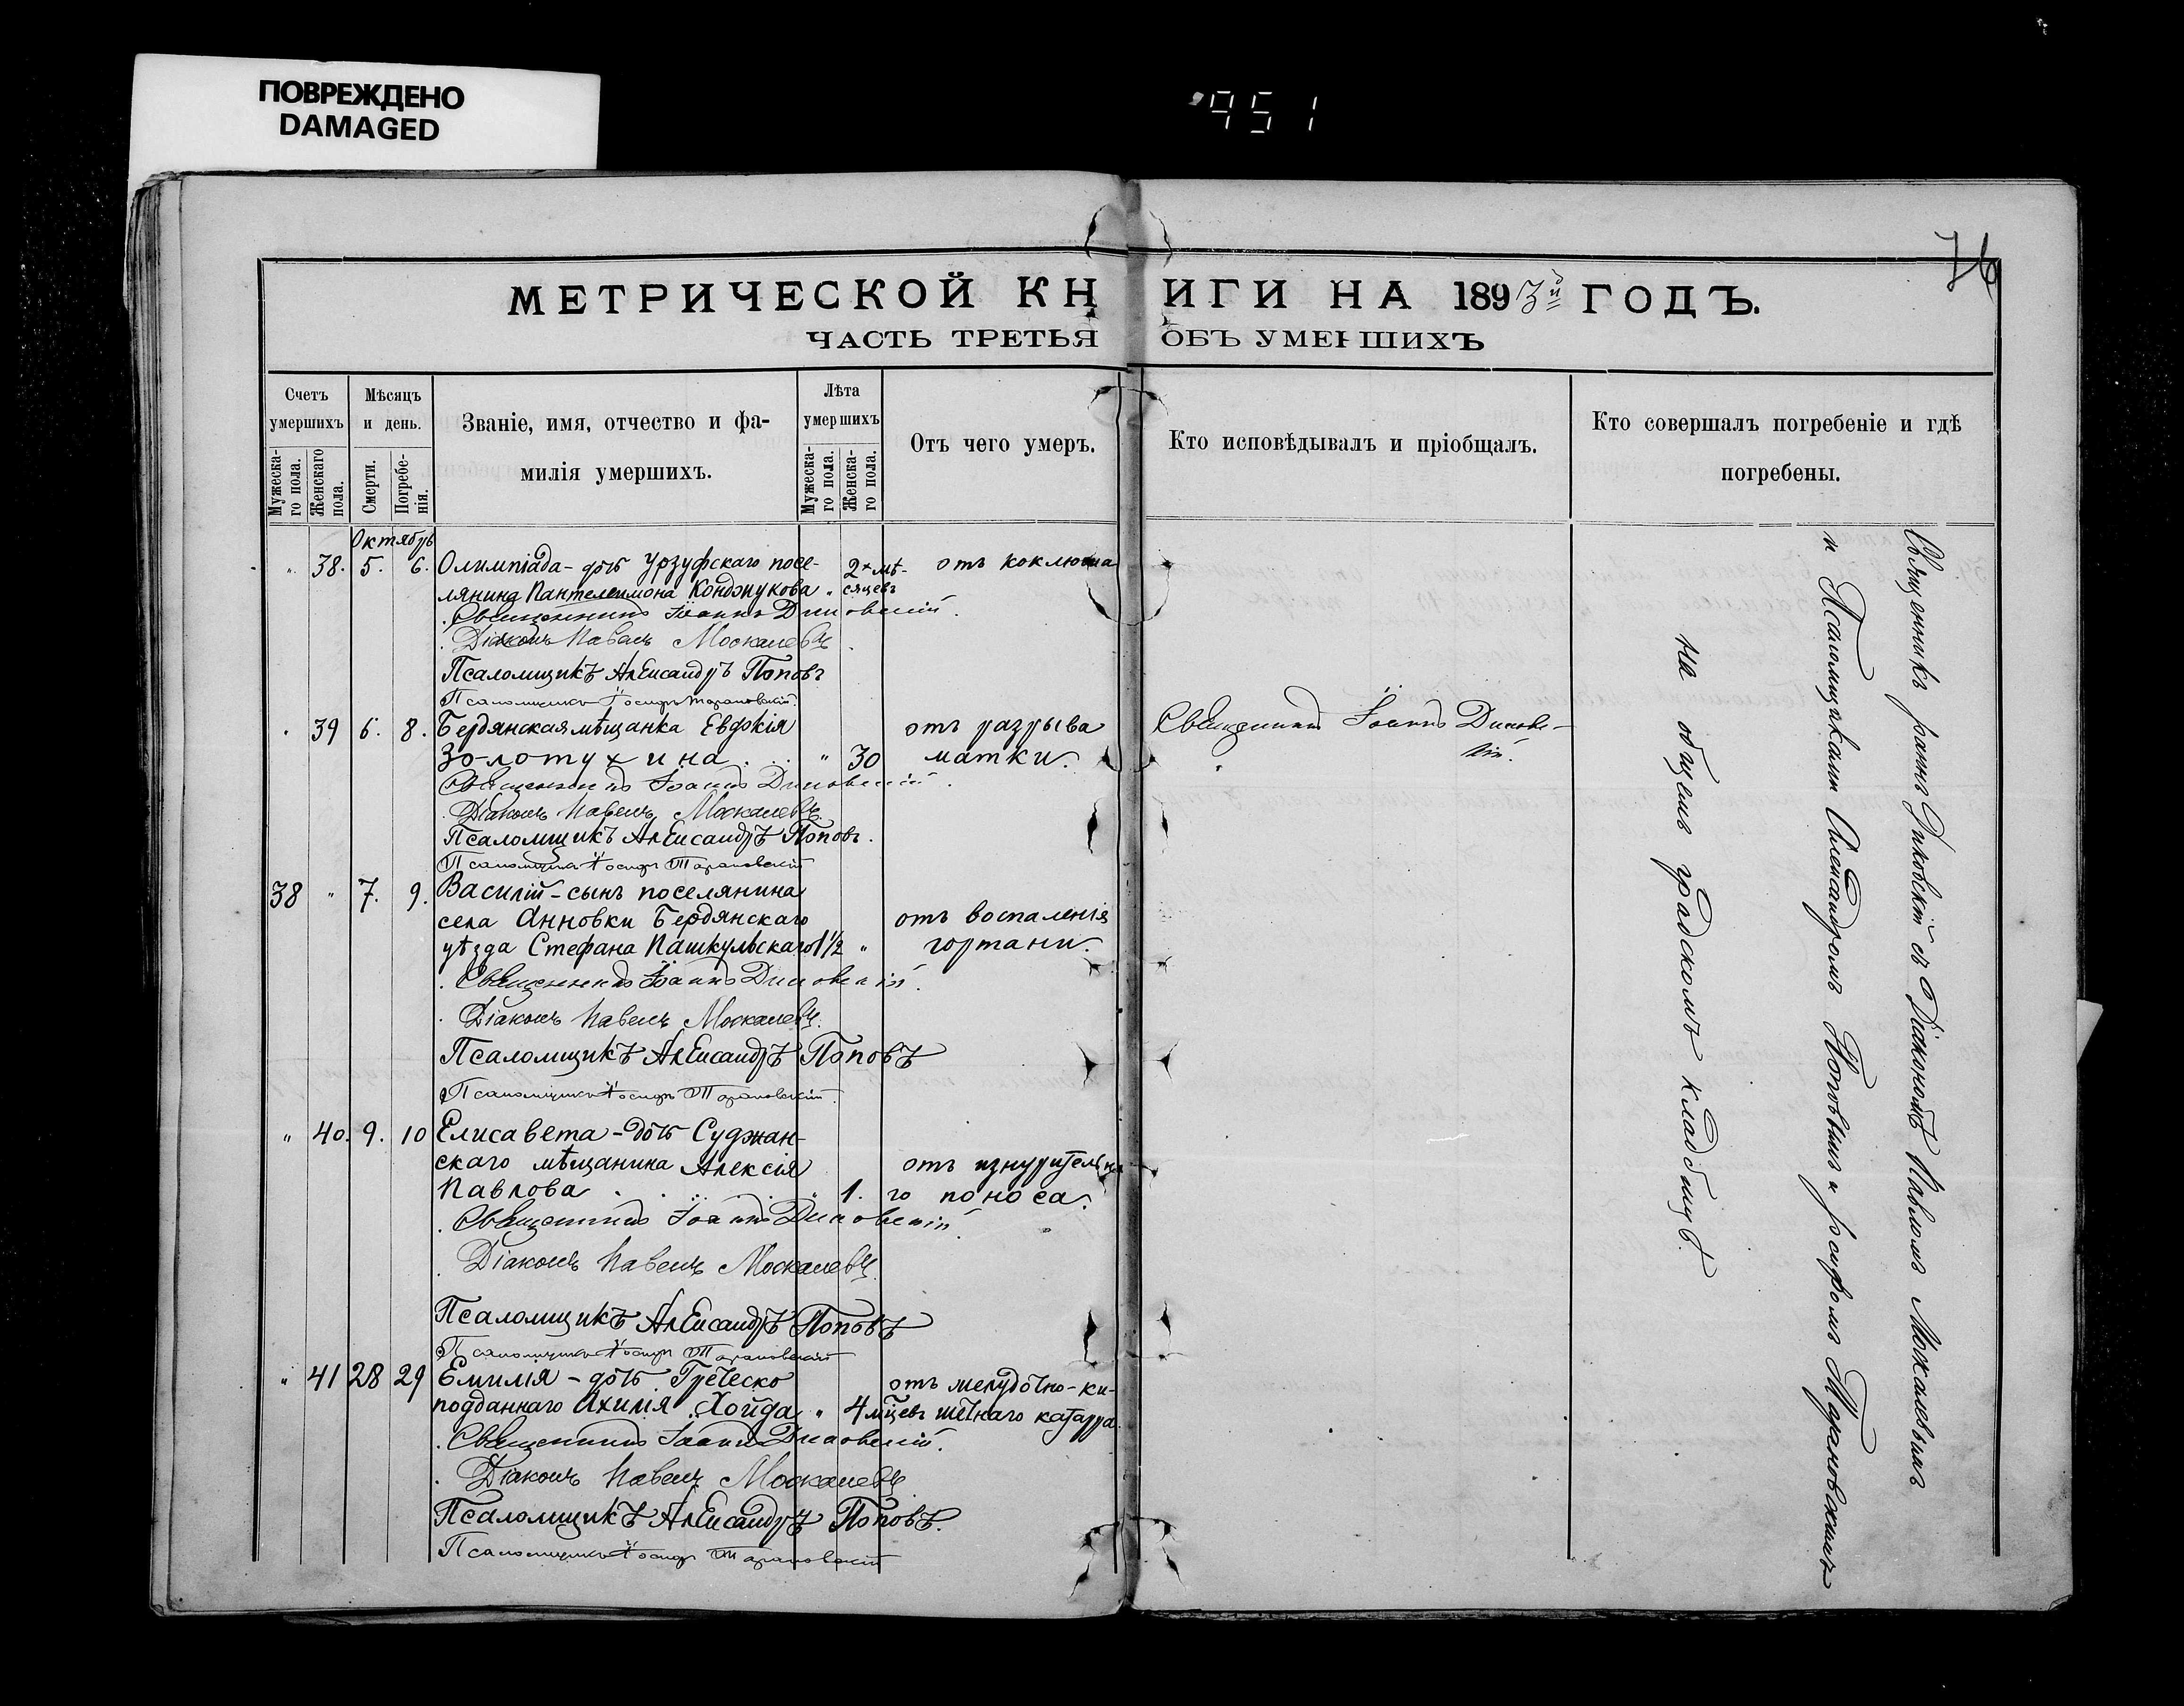 ПОВРЕЖДЕНО
DAMAGED
951
76
МЕТРИЧЕСКОЙ КНИГИ НА 1893й ГОДЪ.
ЧАСТЬ ТРЕТЬЯ ОБЪ УМЕРШИХЪ
Счетъ умершихъ
Мужеска-го пола.
Женскаго пола.
Мѣсяцъ и день.
Смерти.
Погребе-нія.
Званіе, имя, отчество и фа-
милія умершихъ.
Лѣта умершихъ
Мужеска-го пола.
Женска-го пола.
Отъ чего умеръ.
Кто исповѣдывалъ и пріобщалъ.
Кто совершалъ погребеніе и гдѣ
погребены.
Октябрь
" 38. 5. 6. Олимпіада - дочь Урзуфскаго посе- 2х мѣ- отъ коклюша
лянина Пантелеимона Конджукова " сяцевъ
Священникъ Іоаннъ Диковскій.
Діаконъ Павелъ Москалевъ
Псаломщикъ Александръ Поповъ
Псаломщикъ Іосифъ Тарановскій.
" 39 6. 8. Бердянская мѣщанка Евдокія отъ разрыва Священникъ Іоаннъ Диковс-
Золотухина . . . " 30 матки. кій.
Священникъ Іоаннъ Диковскій.
Діаконъ Павелъ Москалевъ
Псаломщикъ Александръ Поповъ.
Псаломщикъ Іосифъ Тарановскій
38 " 7. 9. Василій - сынъ поселянина
села Анновки Бердянскаго отъ воспаленія
уѣзда Стефана Пашкульскаго 1½ " гортани.
Священникъ Іоаннъ Диковскій.
Діаконъ Павелъ Москалевъ.
Псаломщикъ Александръ Поповъ
Псаломщикъ Іосифъ Тарановскій.
" 40. 9. 10 Елисавета - дочь Суджан-
скаго мѣщанина Алексія отъ изнурительна
Павлова . . . . " 1. го поноса.
Священникъ Іоаннъ Диковскій.
Діаконъ Павелъ Москалевъ
Псаломщикъ Александръ Поповъ
Псаломщикъ Іосифъ Тарановскій
" 41 28 29 Емилія - дочь Греческо отъ желудочно-ки-
подданнаго Ахилія Хойда " 4 мѣсцевъ шечнаго катарра.
Священникъ Іоаннъ Диковскій.
Діаконъ Павелъ Москалевъ
Псаломщикъ Александръ Поповъ.
Псаломщикъ Іосифъ Тарановскій
Священникъ Іоаннъ Диковскій съ Діакономъ Павломъ Москалевымъ
и Псаломщиками Александромъ Поповымъ и Іосифомъ Тарановскимъ
на общемъ градскомъ кладбищѣ.